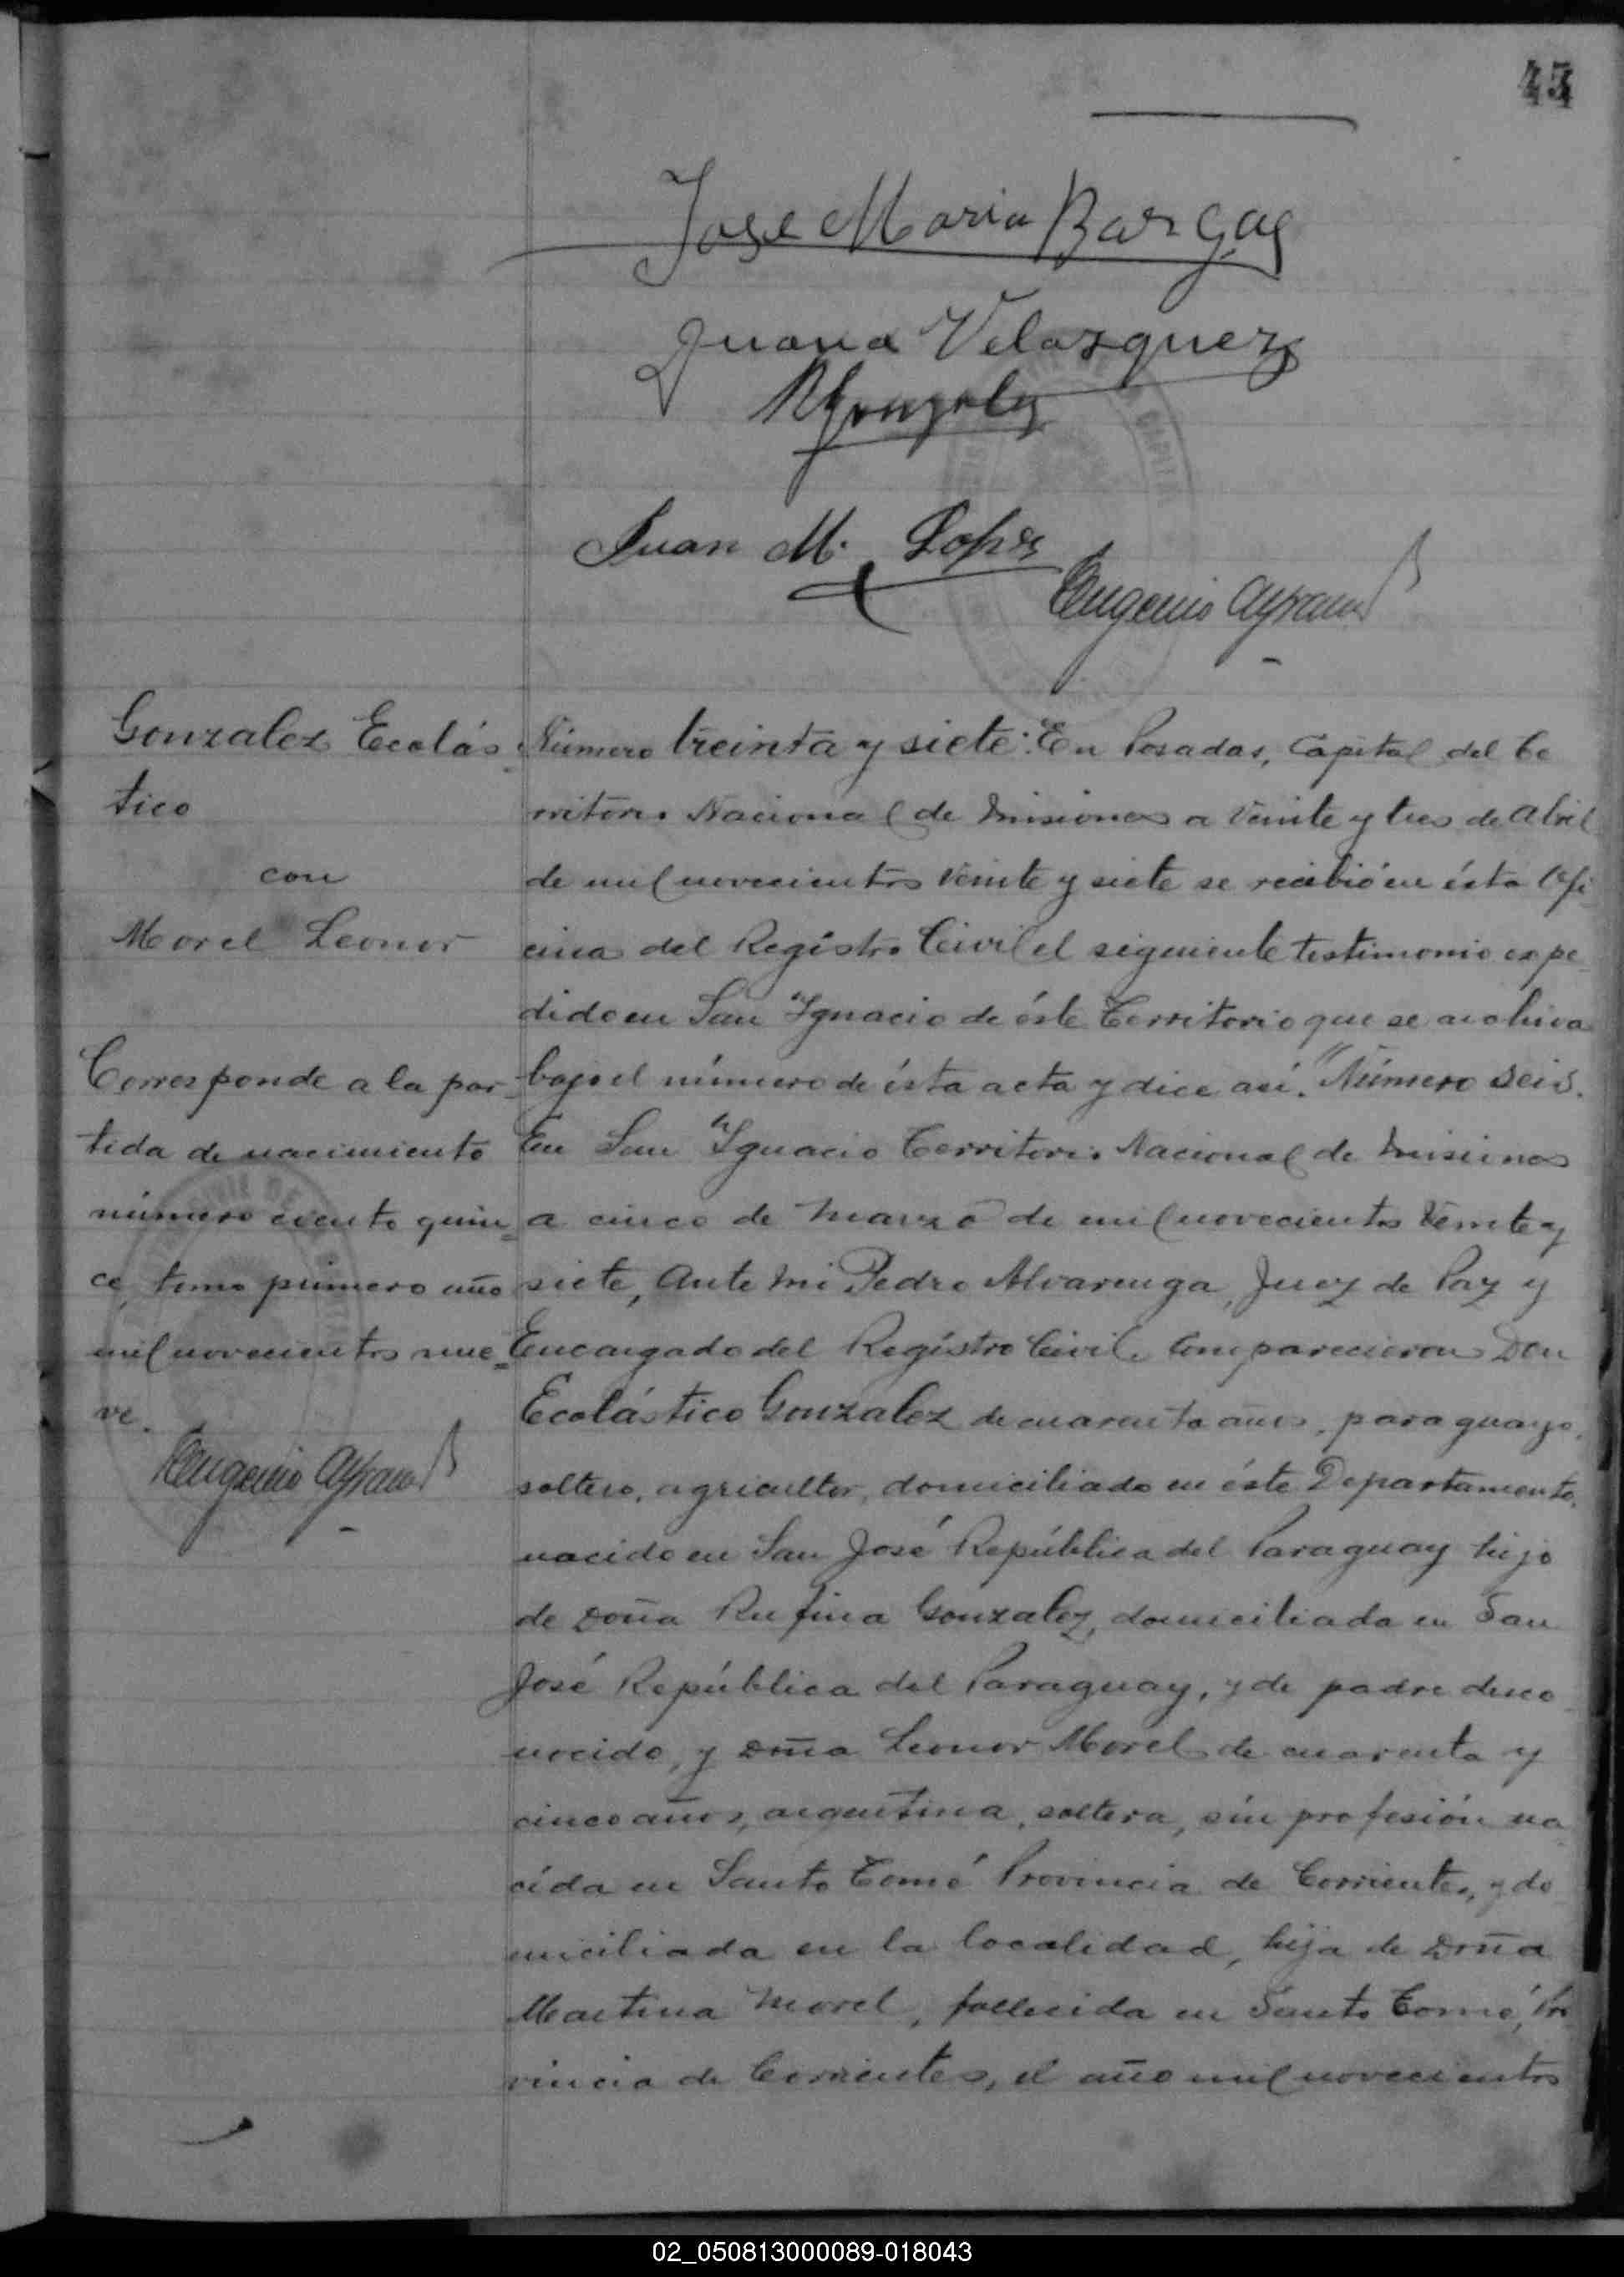 43
Jose Maria Bargas
Juana Velazquez
RGonzalez
Juan M. Lopez
Eugenio
Gonzalez Ecolás-
tico
con
Morel Leonor
Corresponde a la par-
tida de nacimiento
número ciento quin-
ce, tomo primero año
mil novecientos nue-
ve.
Eugenio
Número treinta y siete: En Posadas, Capital del Te
rritorio Nacional de Misiones a veinte y tres de Abril
de mil novecientos veinte y siete se recibió en ésta Ofi
cina del Registro Civil el siguiente testimonio expe
dido en San Ignacio de éste Territorio que se archiva
bajo el número de ésta acta y dice así. "Número Seis.
En San Ignacio Territorio Nacional de Misiones
a cinco de Marzo de mil novecientos veinte y
siete, Ante mi Pedro Alvarenga, Juez de Paz y
Encargado del Registro Civil, Comparecieron Don
Ecolástico Gonzalez de cuarenta años, paraguayo,
soltero, agricultor, domiciliado en éste Departamento,
nacido en San José República del Paraguay hijo
de Doña Rufina Gonzalez, domiciliada en San
José República del Paraguay, y de padre desco
nocido, y Doña Leonor Morel de cuarenta y
cinco años, argentina, soltera, sin profesión na
cida en Santo Tomé Provincia de Corrientes, y do
miciliada en la localidad, hija de Doña
Martina Morel, fallecida en Santo Tomé, Pro
vincia de Corrientes, el año mil novecientos
02_050813000089-018043